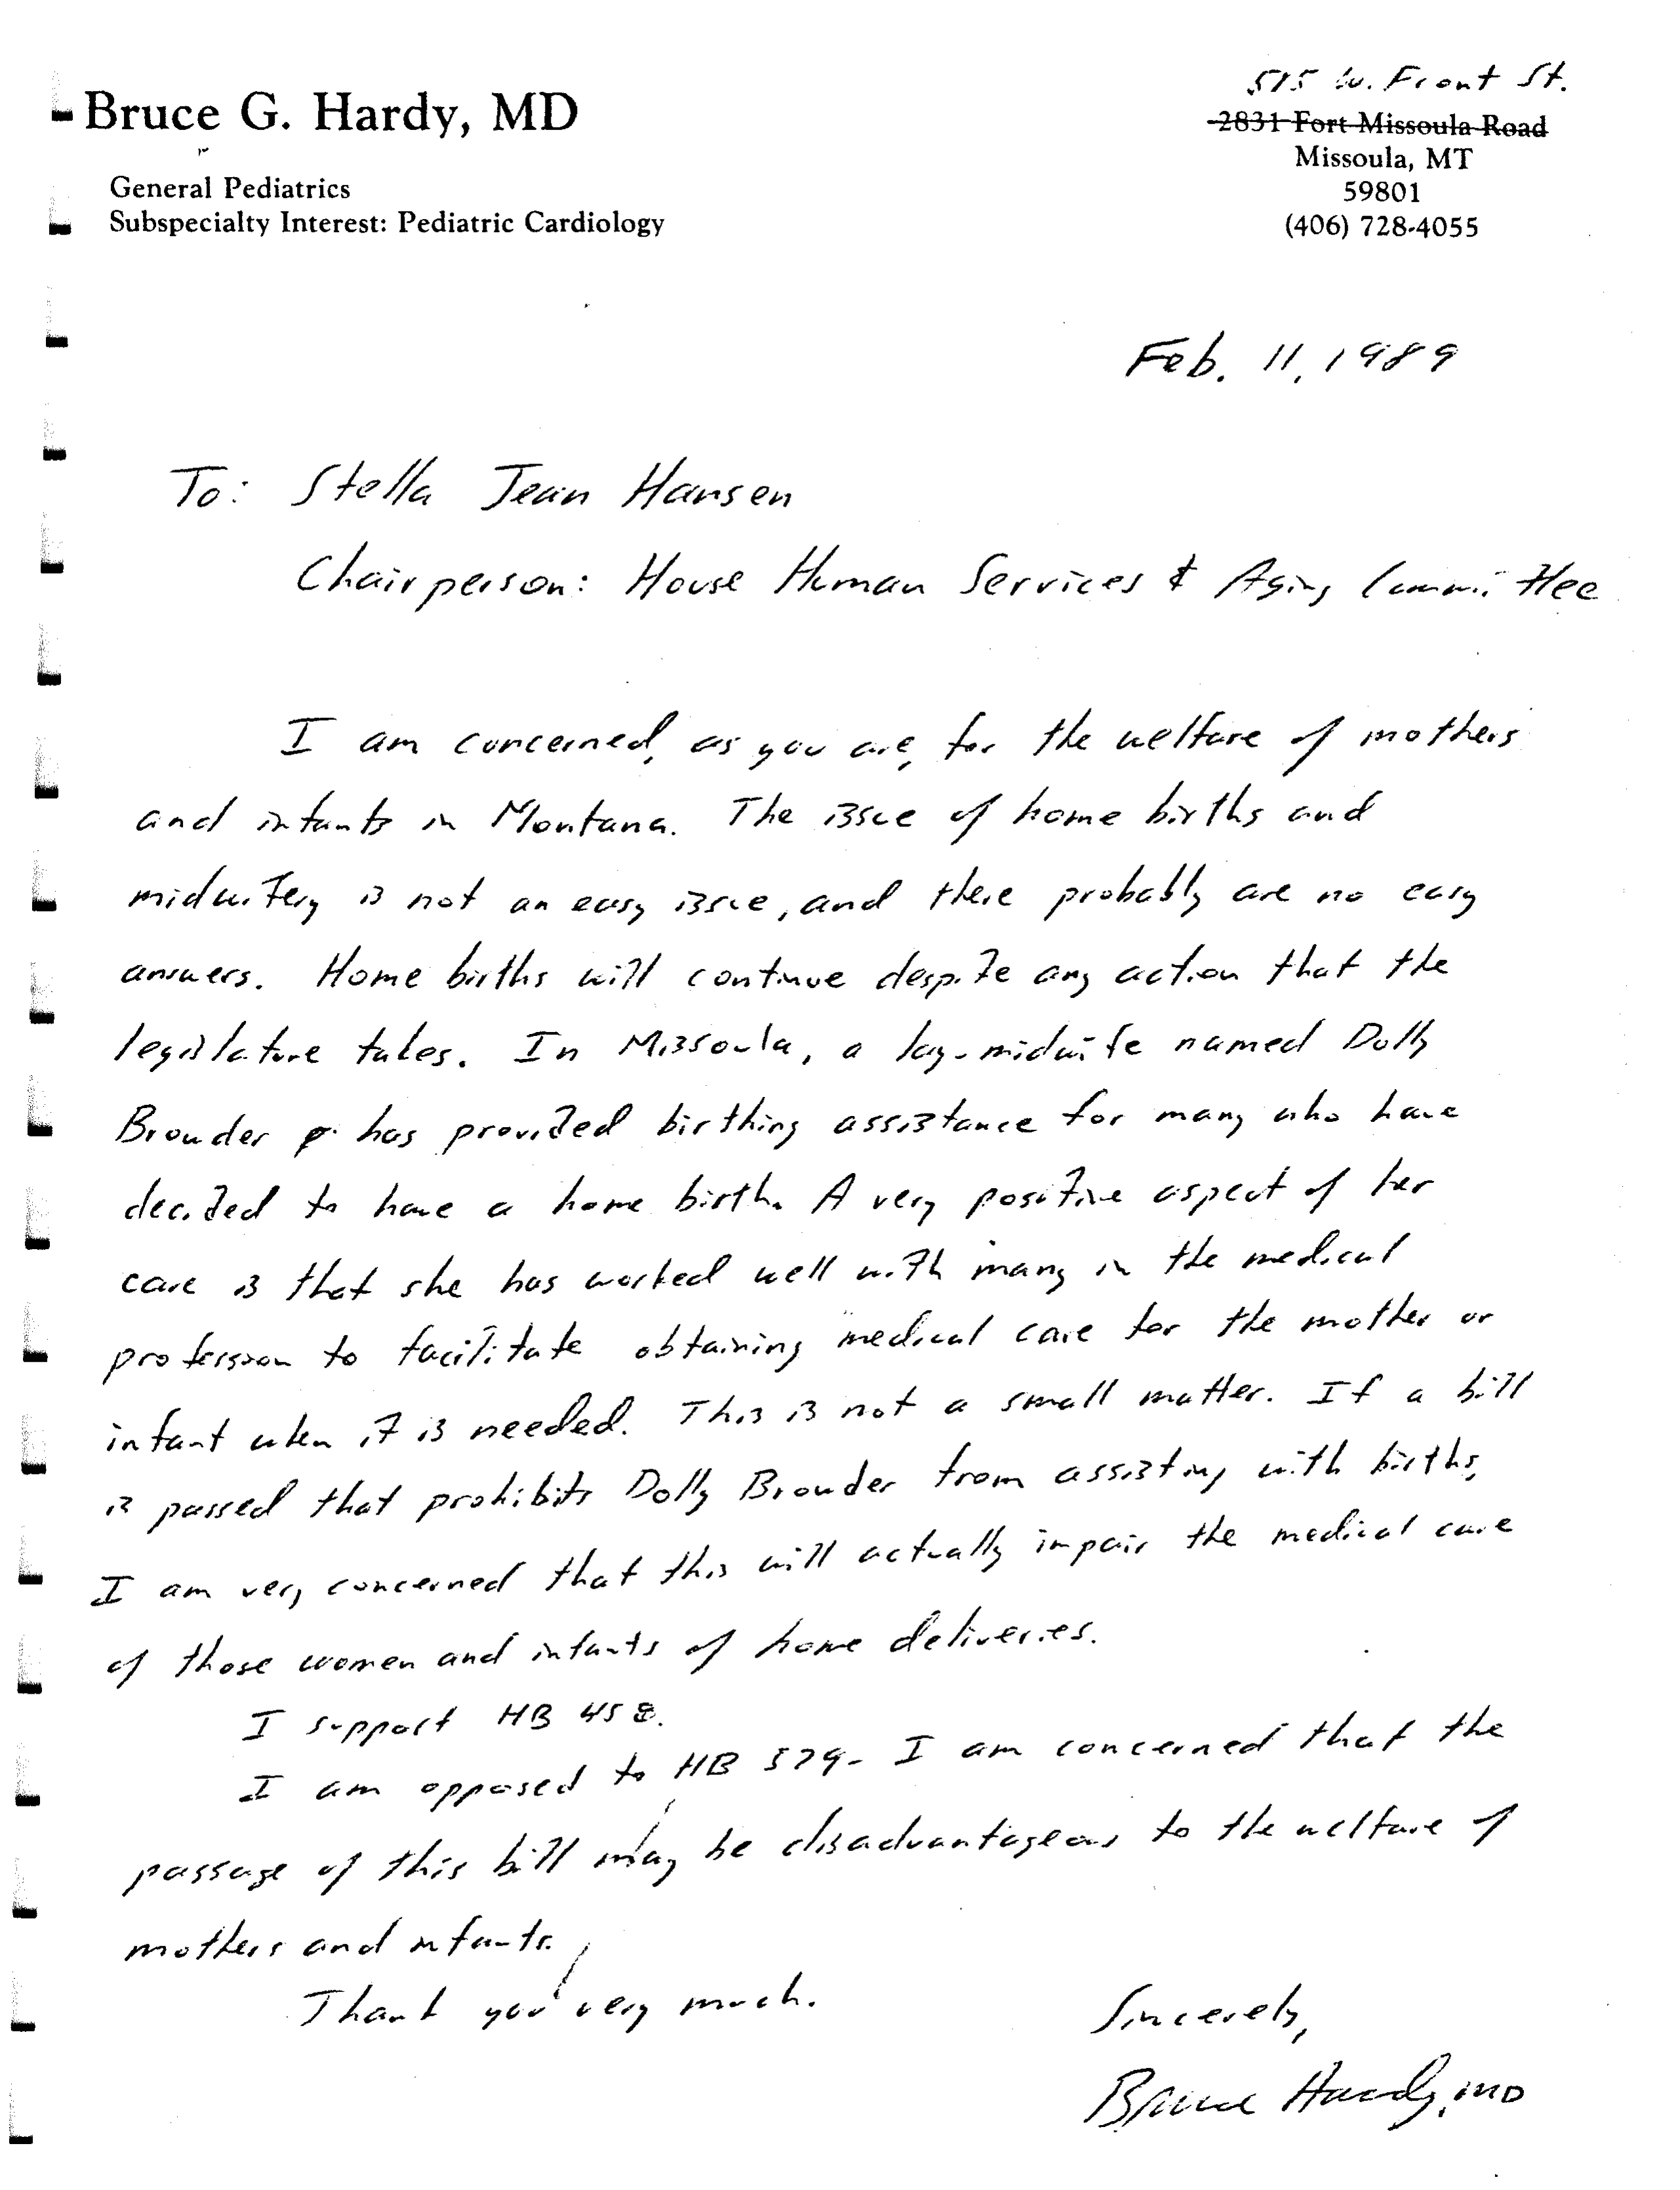 Bruce G. Hardy, MD
General Pediatrics
Subspecialty Interest: Pediatric Cardiology
515 W. Front St.
2831 Fort Missoula Road
Missoula, MT
59801
(406) 728-4055
Feb. 11, 1989
To: Stella Jean Hansen
Chairperson: House Human Services & Aging Committee
I am concerned, as you are, for the welfare of mothers
and infants in Montana. The issue of home births and
midwifery is not an easy issue, and there probably are no easy
answers. Home births will continue despite any action that the
legislature takes. In Missoula, a lay-midwife named Dolly
Browder has provided birthing assistance for many who have
decided to have a home birth. A very positive aspect of her
care is that she has worked well with many in the medical
profession to facilitate obtaining medical care for the mother or
infant when it is needed. This is not a small matter. If a bill
is passed that prohibits Dolly Browder from assisting with births,
I am very concerned that this will actually impair the medical care
of those women and infants of home deliveries.
I support HB 458.
I am opposed to HB 579. I am concerned that the
passage of this bill may be disadvantageous to the welfare of
mothers and infants.
Thank you very much.
Sincerely,
Bruce Hardy, MD